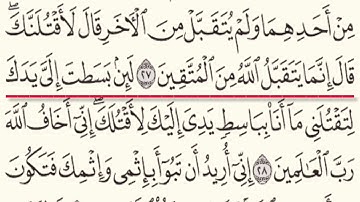 مِنْ أَحَدِهِمَا وَلَمْ يُتَقَبَّلْ مِنَ ٱلْأَخَرِ قَالَ لَأَقْتُلَنَّكَۖ
قَالَ إِنَّمَا يَتَقَبَّلُ ٱللَّهُ مِنَ ٱلْمُتَّقِينَ ٢٧ لَئِنۢ بَسَطتَ إِلَىَّ يَدَكَ
لِتَقْتُلَنِى مَآ أَنَا۠ بِبَاسِطٍ يَدِىَ إِلَيْكَ لِأَقْتُلَكَۖ إِنِّىٓ أَخَافُ ٱللَّهَ
رَبَّ ٱلْعَٰلَمِينَ ٢٨ إِنِّىٓ أُرِيدُ أَن تَبُوٓأَ بِإِثْمِى وَإِثْمِكَ فَتَكُونَ